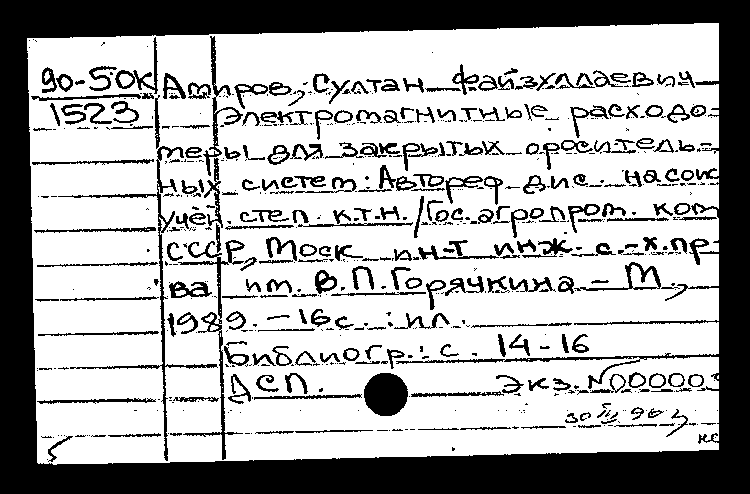 90-50к Амиров, Султан Файзуллаевич
1523 Электромагнитные расходо-
меры для закрытых ороситель-
ных систем: Автореф. дис. на соис
учён. степ. к.т.н. / Гос. агропром. ком
СССР, Моск ин-т инж. с.-х. пр-
ва им. В.П. Горячкина. - М.,
1989. - 16 с. : ил.
Библиогр.: с. 14-16
ДСП. Экз. N00000